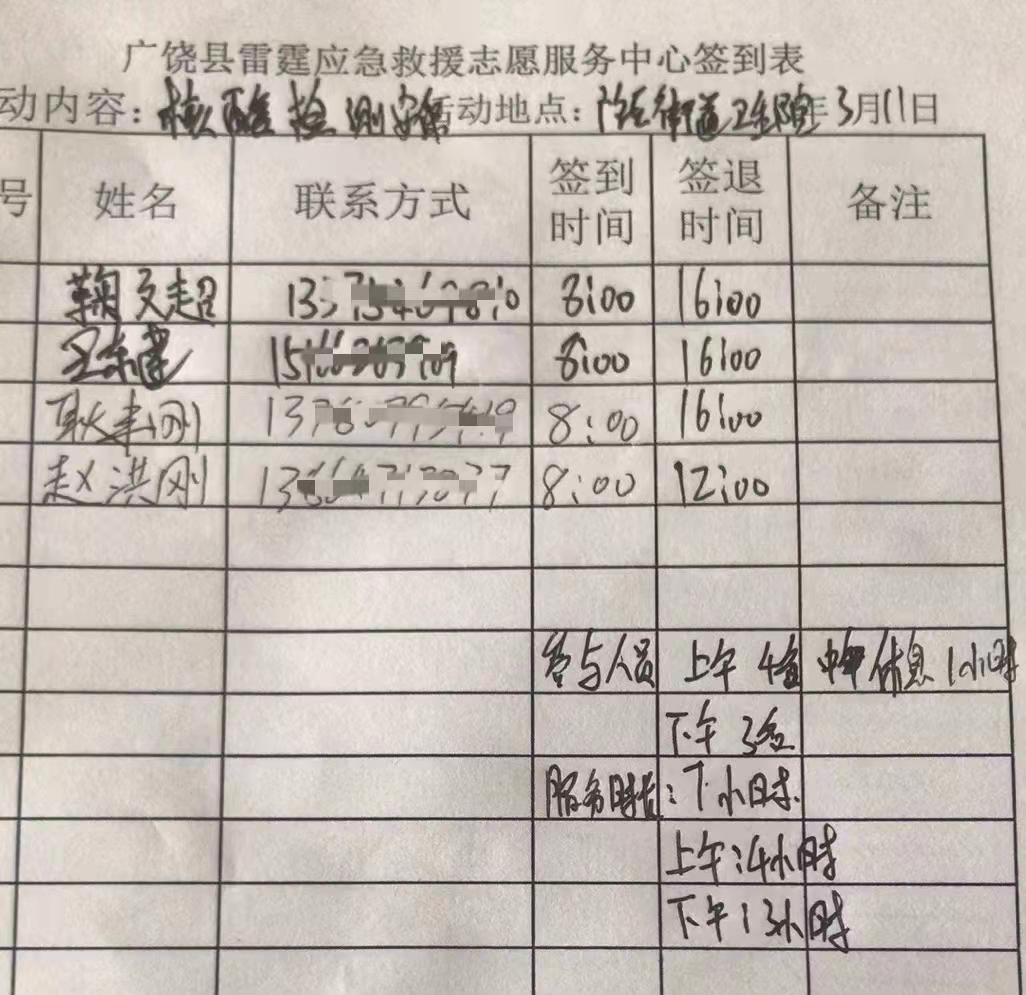 广饶县雷霆应急救援志愿服务中心签到表
动内容：核酸检测 活动地点： 街道卫生院 年3月11日
号 姓名 联系方式 签到时间 签退时间 备注
鞠文超 8:00 16:00
王东建 8:00 16:00
耿建刚 8:00 16:00
赵洪刚 8:00 12:00
参与人员 上午4名 中午休息1小时
下午3名
服务时长：7小时
上午：4小时
下午：3小时